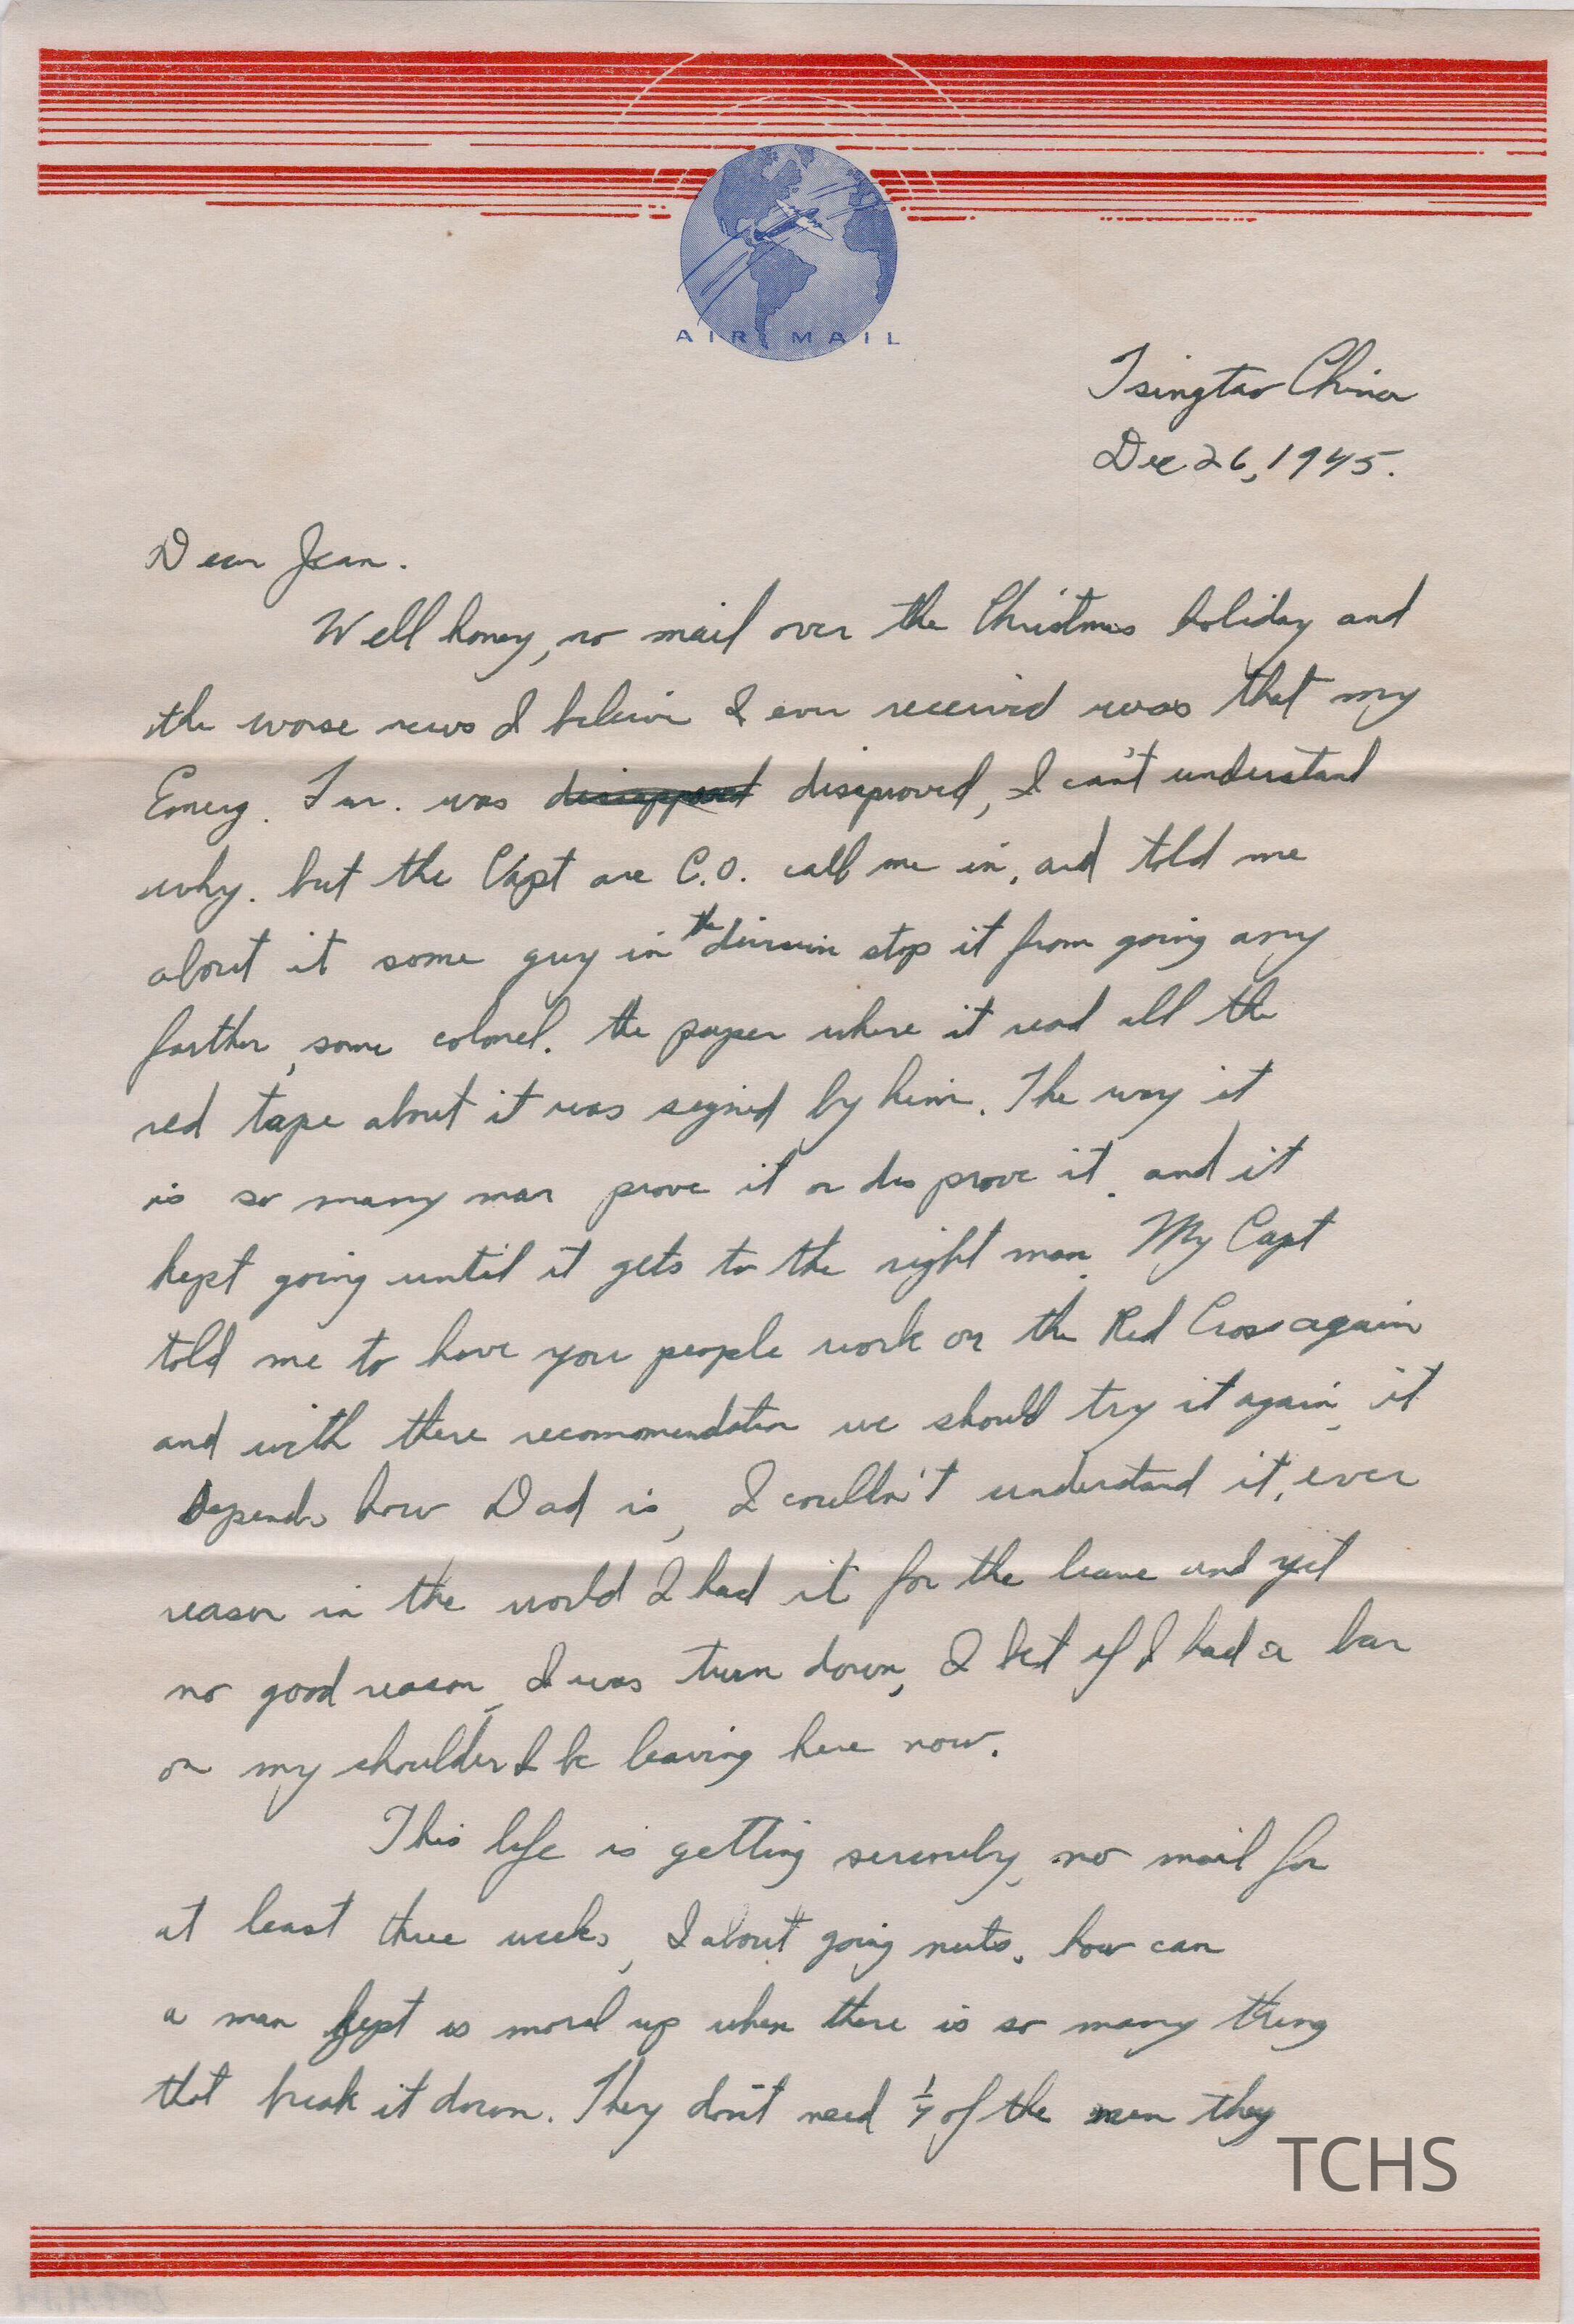 AIR MAIL
Tsingtao China
Dec 26, 1945.
Dear Jean.
Well honey, no mail over the Christmas holiday and
the worse news I believe I ever received was that my
Emerg. Fur. was disapproved, I can't understand
why. but the Capt are C.O. call me in, and told me
about it some guy in the stop it from going any
farther, some colonel. the paper where it read all the
red tape about it was signed by him. The way it
is so many man prove it or dis prove it. and it
kept going until it gets to the right man. My Capt
told me to have you people work on the Red Cross again
and with there recommendation we should try it again, it
depends how Dad is, I couldn't understand it, ever
reason in the world I had it for the leave and yet
no good reason, I was turn down, I bet if I had a bar
on my shoulder I be leaving here now.
This life is getting no mail for
at least three weeks, I about going nuts. how can
a man kept is moral up when there is so many thing
that break it down. They don't need of the men they
TCHS